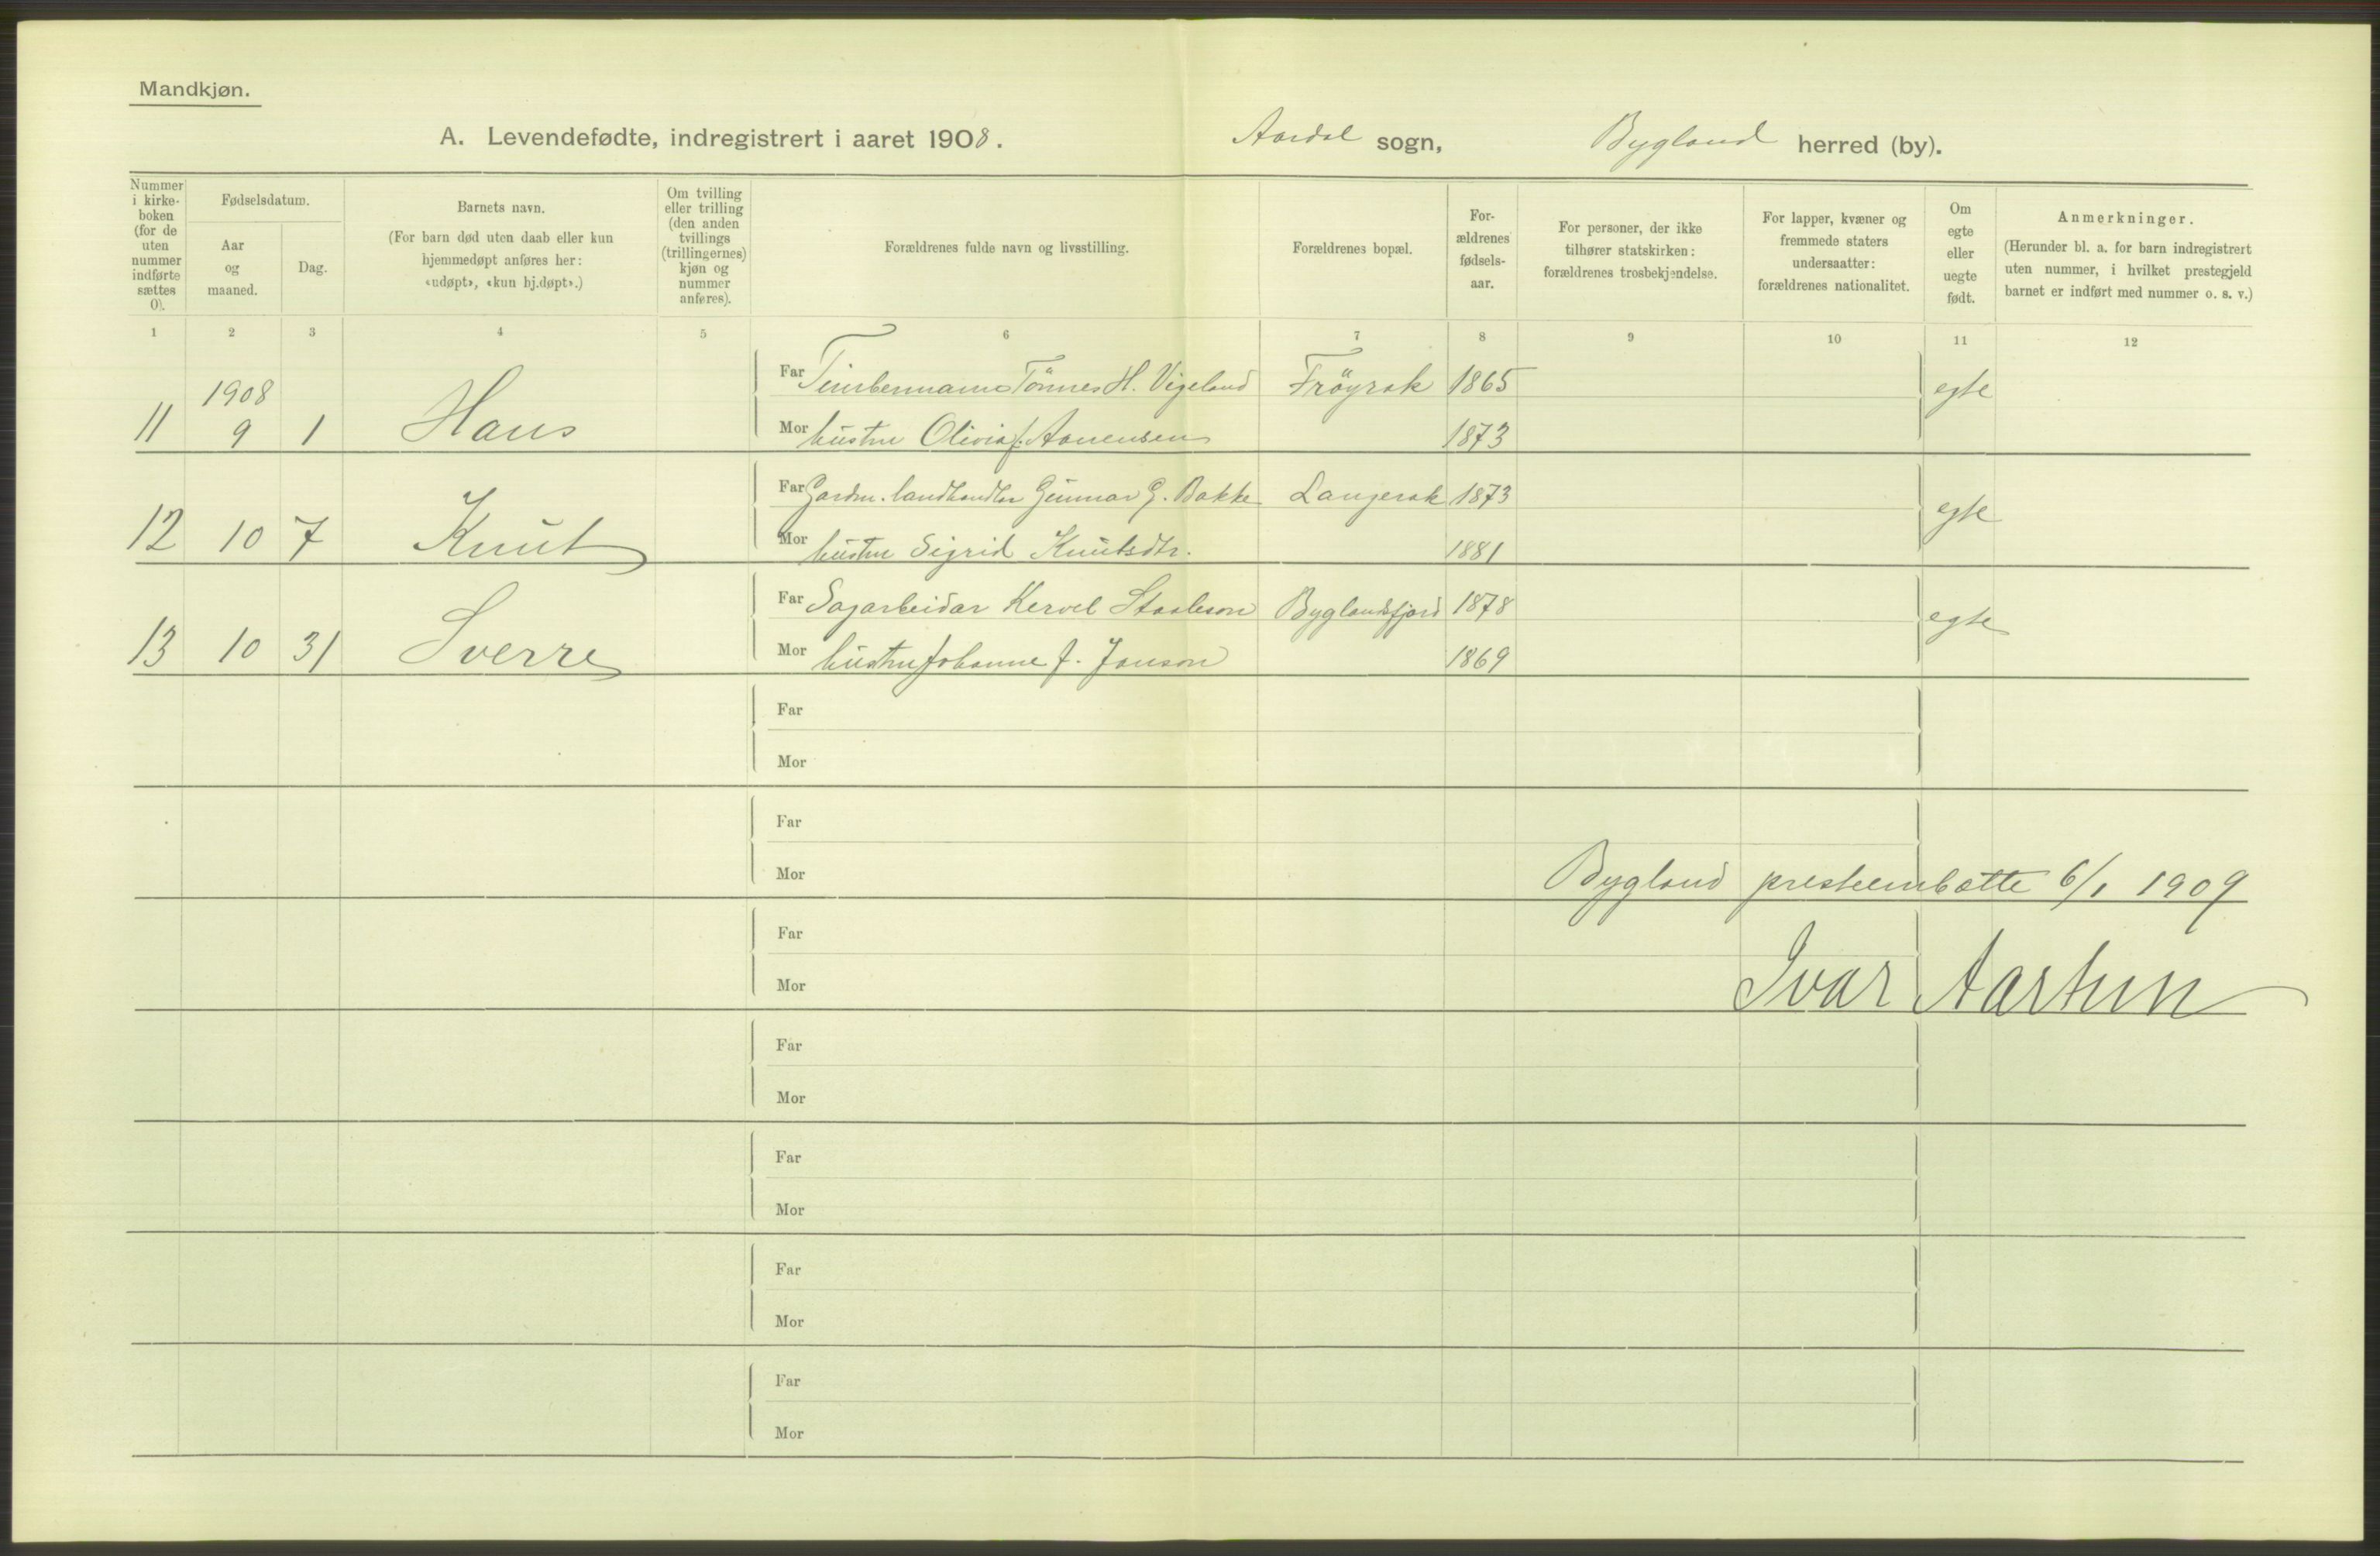 Mandkjøn.
A. Levendefødte, indregistrert i aaret 1908.
Aardal sogn,
Bygland herred (by).
Nummer i kirke-boken (for de uten nummer indførte sættes 0).
Fødselsdatum.
Aar og maaned.
Dag.
Barnets navn.
(For barn død uten daab eller kun
hjemmedøpt anføres her:
«udøpt», «kun hj.døpt».)
Om tvilling
eller trilling
(den anden
tvillings
(trillingernes)
kjøn og
nummer
anføres).
Forældrenes fulde navn og livsstilling.
Forældrenes bopæl.
For-
ældrenes
fødsels-
aar.
For personer, der ikke
tilhører statskirken:
forældrenes trosbekjendelse.
For lapper, kvæner og
fremmede staters
undersaatter:
forældrenes nationalitet.
Om
egte
eller
uegte
født.
Anmerkninger.
(Herunder bl. a. for barn indregistrert
uten nummer, i hvilket prestegjeld
barnet er indført med nummer o. s. v.)
1 2 3 4 5 6 7 8 9 10 11 12
1908
Far Timbermann Tönnes H. Vigeland Fröyrak 1865 egte
11 9 1 Hans
Mor hustru Olivia f. Aanensen 1873
Far Gardm. landhandlar Gunnar G. Bakke Langerak 1873 egte
12 10 7 Knut
Mor hustru Sigrid Knutsdtr. 1881
Far Sagarbeidar Kervel Staaleson Byglandsfjord 1878 egte
13 10 31 Sverre
Mor hustru Johanne f. Janson 1869
Far
Mor
Far
Mor
Bygland presteembætte 6/1 1909
Far
Mor
Ivar Aartun
Far
Mor
Far
Mor
Far
Mor
Far
Mor